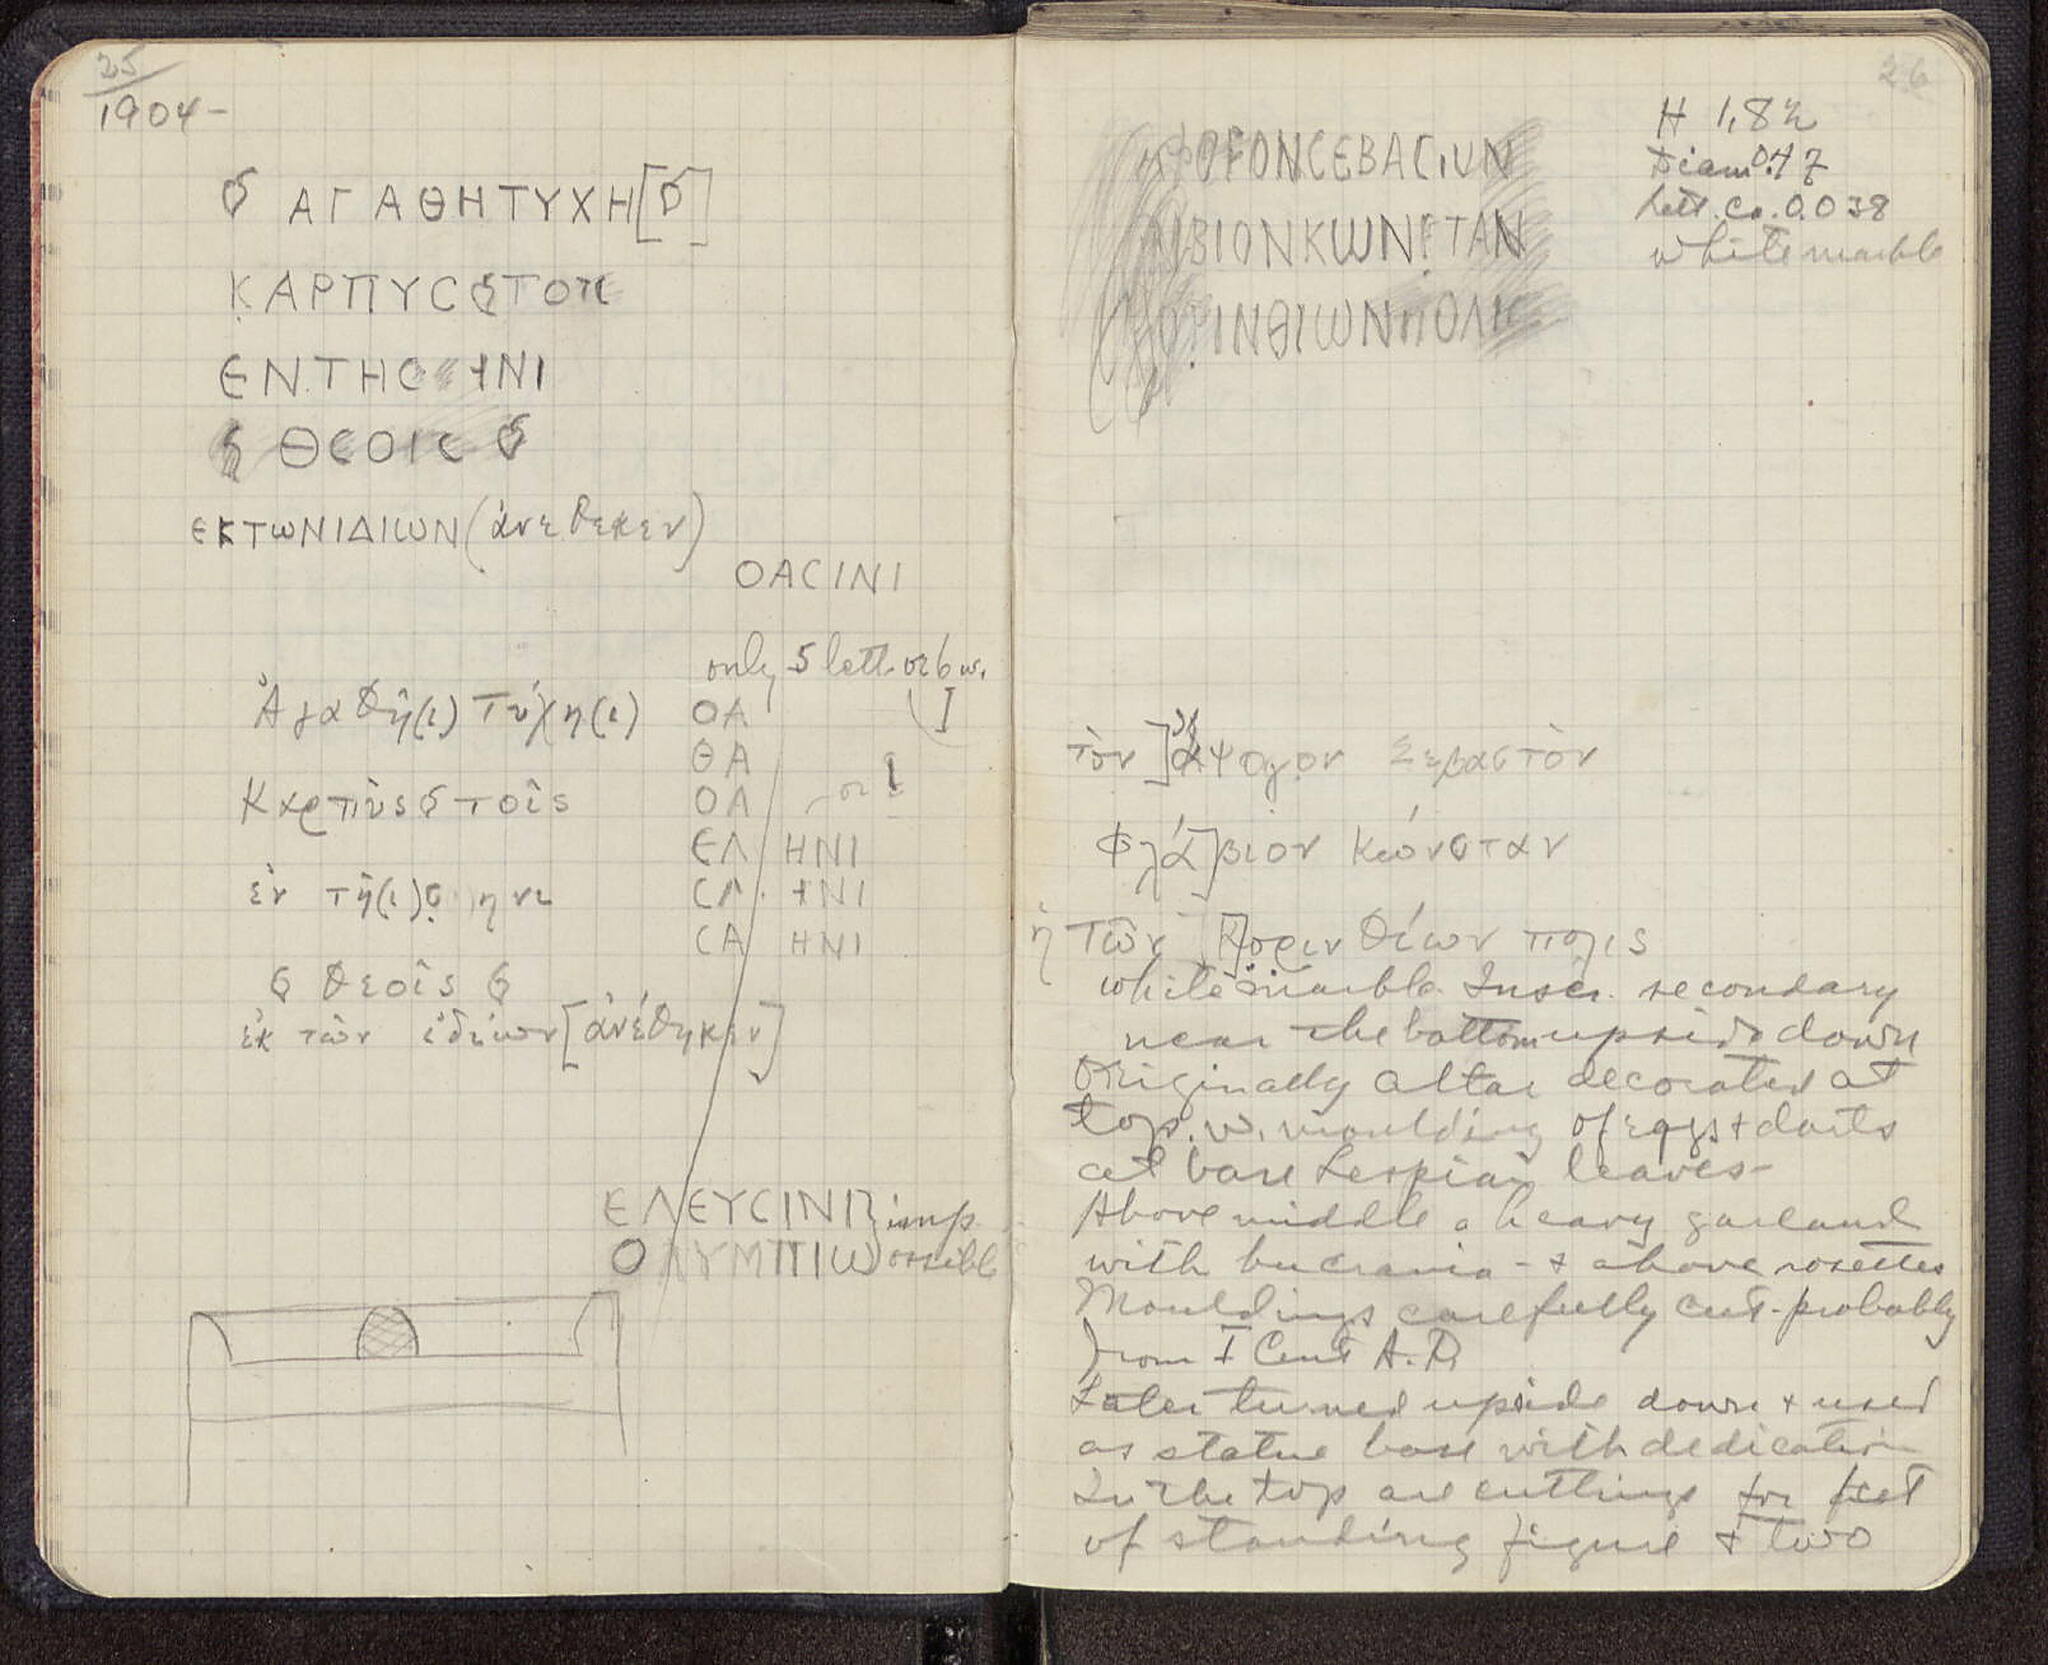 25
1904-
ΑΓΑΘΗΤΥΧΗ[ϭ]
ΚΑΡΠΥϹ ϭ ΤΟΙ
ЄΝΤΗϹ ΗΝΙ
ϭ ΘЄΟΙϹ ϭ
ЄΚΤωΝΙΔΙωΝ (ἀνεθεκεν)
ΟΑϹΙΝΙ
only 5 lett. or 6 w.
Ἀγαθῆ(ι) Τύχη(ι) ΟΑ
ΘΑ
Καρπὺς ϭ τοῖς ΟΛ or
ЄΛ ΗΝΙ
ἐν τῆ(ι) ηνι ϹΛ. ΗΝΙ
ϹΑ ΗΝΙ
ϭ θεοῖς ϭ
ἐκ τῶν ἰδίων [ἀνέθηκεν]
ЄΛЄΥϹΙΝΙ } imp
ΟΛΥΜΠΙω ossible
26
H 1,82
Diam 0.47
Lett. ca. 0.038
white marble
ΟΓΟΝϹЄΒΑϹΤΟΝ
ΒΙΟΝΚωΝϹΤΑΝ
ΟΡΙΝΘΙωΝΠΟΛΙϹ
τὸν ] ἄψογον Σεβαστὸν
Φλά]βιον Κώνσταν
ἡ Τῶν Κ]ορινθίων πολις
white marble. Inscr. secondary
near the bottom upside down
Originally altar decorated at
top. w. moulding of eggs + darts
at base Lesbian leaves-
Above middle a heavy garland
with bucrania - + above rosettes
Mouldings carefully cut - probably
from I Cent A.D.
Later turned upside down + used
as statue base with dedication
In the top are cuttings for feet
of standing figure + two